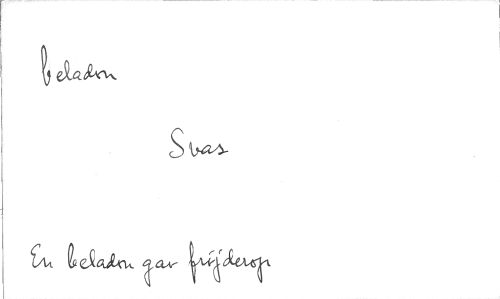 beladon
Svas
En beladon gav fröjderop